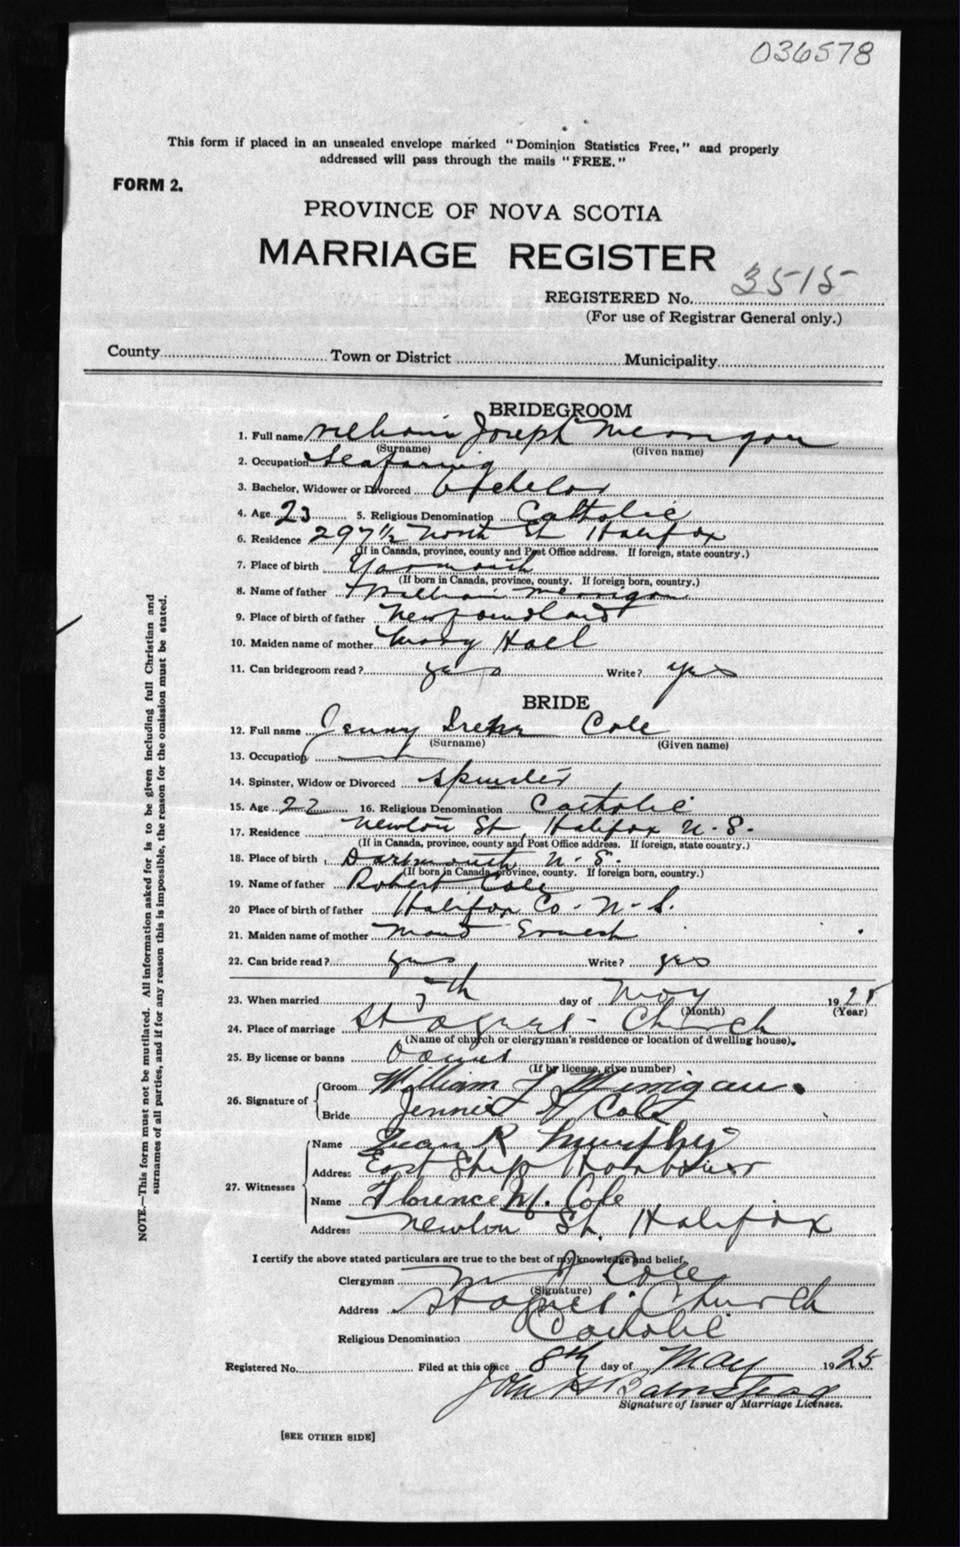 036578
This form if placed in an unsealed envelope marked "Dominion Statistics Free," and properly
addressed will pass through the mails "FREE."
FORM 2.
PROVINCE OF NOVA SCOTIA
MARRIAGE REGISTER
REGISTERED No. 3515
(For use of Registrar General only.)
County Town or District Municipality
BRIDEGROOM
1. Full name William Joseph Merrigan
(Surname) (Given name)
2. Occupation Seafaring
3. Bachelor, Widower or Divorced Bachelor
4. Age 23 5. Religious Denomination Catholic
6. Residence 297½ North St Halifax
(If in Canada, province, county and Post Office address. If foreign, state country.)
7. Place of birth Yarmouth
(If born in Canada, province, county. If foreign born, country.)
8. Name of father William Merrigan
9. Place of birth of father Newfoundland
10. Maiden name of mother Mary Hall
11. Can bridegroom read? yes Write? yes
BRIDE
12. Full name Jenny Cole
(Surname) (Given name)
13. Occupation
14. Spinster, Widow or Divorced Spinster
15. Age 22 16. Religious Denomination Catholic
17. Residence Newton St, Halifax N.S.
(If in Canada, province, county and Post Office address. If foreign, state country.)
18. Place of birth Dartmouth, N.S.
(If born in Canada, province, county. If foreign born, country.)
19. Name of father Robert Cole
20 Place of birth of father Halifax Co. N.S.
21. Maiden name of mother Ernest
22. Can bride read? yes Write? yes
23. When married day of May 1925
(Month) (Year)
24. Place of marriage St Agnes Church
(Name of church or clergyman's residence or location of dwelling house).
25. By license or banns banns
(If by license, give number)
26. Signature of
Groom William J Merrigan
Bride Jennie Cole
27. Witnesses
Name R Murphy
Address East Ship Harbour
Name Florence M. Cole
Address Newton St, Halifax
I certify the above stated particulars are true to the best of my knowledge and belief.
Clergyman Cole
(Signature)
Address St Agnes Church
Religious Denomination Catholic
Registered No. Filed at this office 8th day of May 1925
John H Barnstead
Signature of Issuer of Marriage Licenses.
[SEE OTHER SIDE]
NOTE.—This form must not be mutilated. All information asked for is to be given including full Christian and
surnames of all parties, and if for any reason this is impossible, the reason for the omission must be stated.